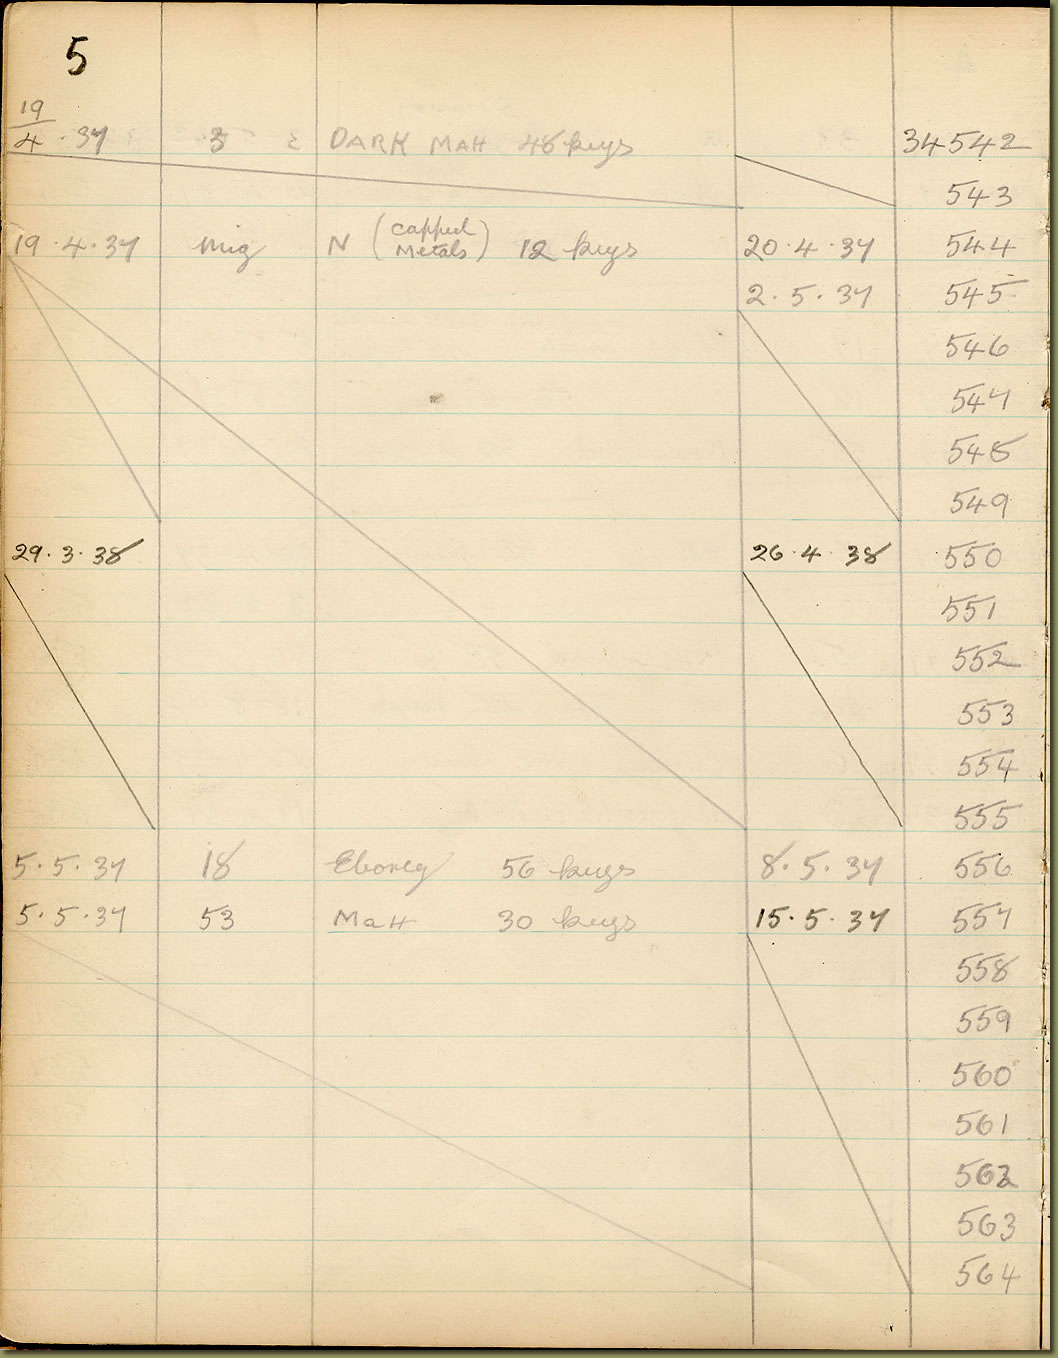 5
19/4 · 37 3 DARK MAH 48 keys 34542
543
19 · 4 · 37 Mig N (capped Metals) 12 keys 20 · 4 · 37 544
2 · 5 · 37 545
546
547
548
549
29 · 3 · 38 26 · 4 · 38 550
551
552
553
554
555
5 · 5 · 37 18 Eboney 56 keys 8 · 5 · 37 556
5 · 5 · 37 53 MaH 30 keys 15 · 5 · 37 557
558
559
560
561
562
563
564